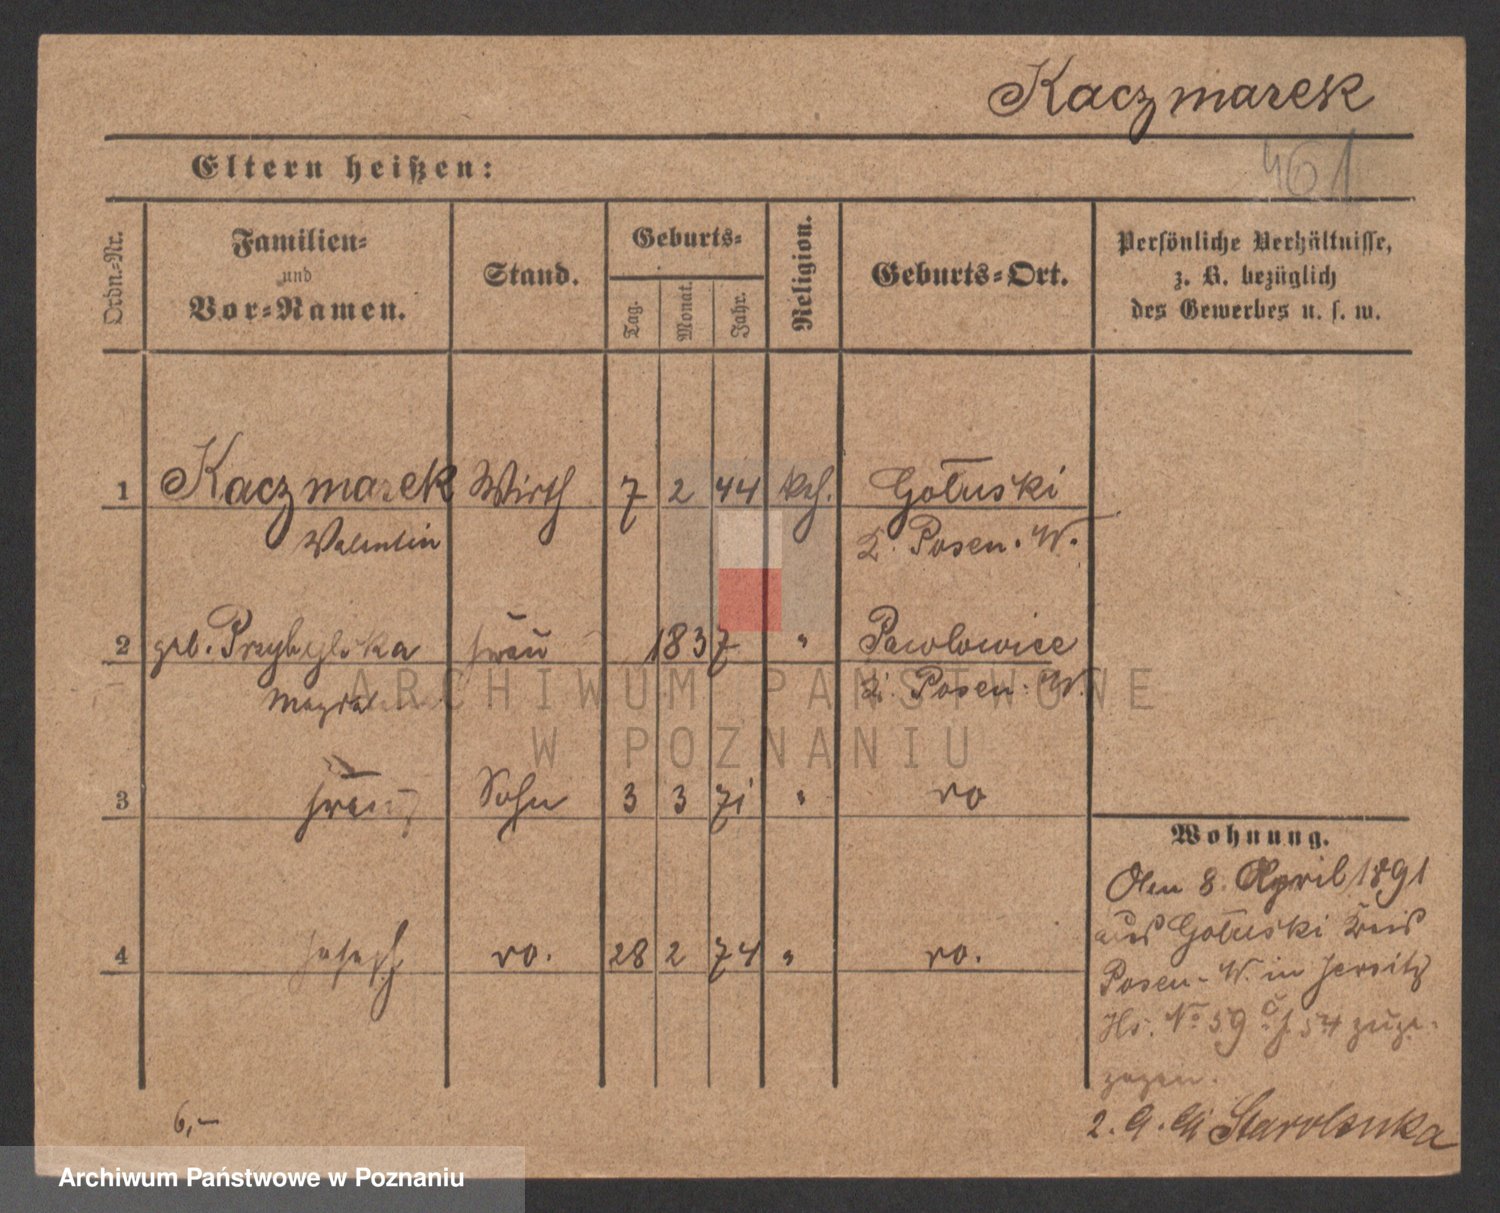 Kaczmarek
461
Eltern heißen:
Ordn.-Nr.
Familien-
und
Vor-Namen.
Stand.
Geburts-
Tag.
Monat.
Jahr.
Religion.
Geburts-Ort.
Persönliche Verhältnisse,
z. B. bezüglich
des Gewerbes u. s. w.
1 Kaczmarek Wirth 7 2 44 kth. Gołuski
Valentin K. Posen. W.
2 geb. Przybylska Frau 1837 " Pawlowice
K. Posen. W.
3 Franz Sohn 3 3 71 " do
4 Joseph do. 28 2 74 " do.
Wohnung.
Den 8. April 1891
aus Gołuski Kreis
Posen-W. in Jersitz
Hs. No 59 54 zuge-
zogen.
6,-
2. 9. 91 Starolenka
ARCHIWUM PAŃSTWOWE
W POZNANIU
Archiwum Państwowe w Poznaniu